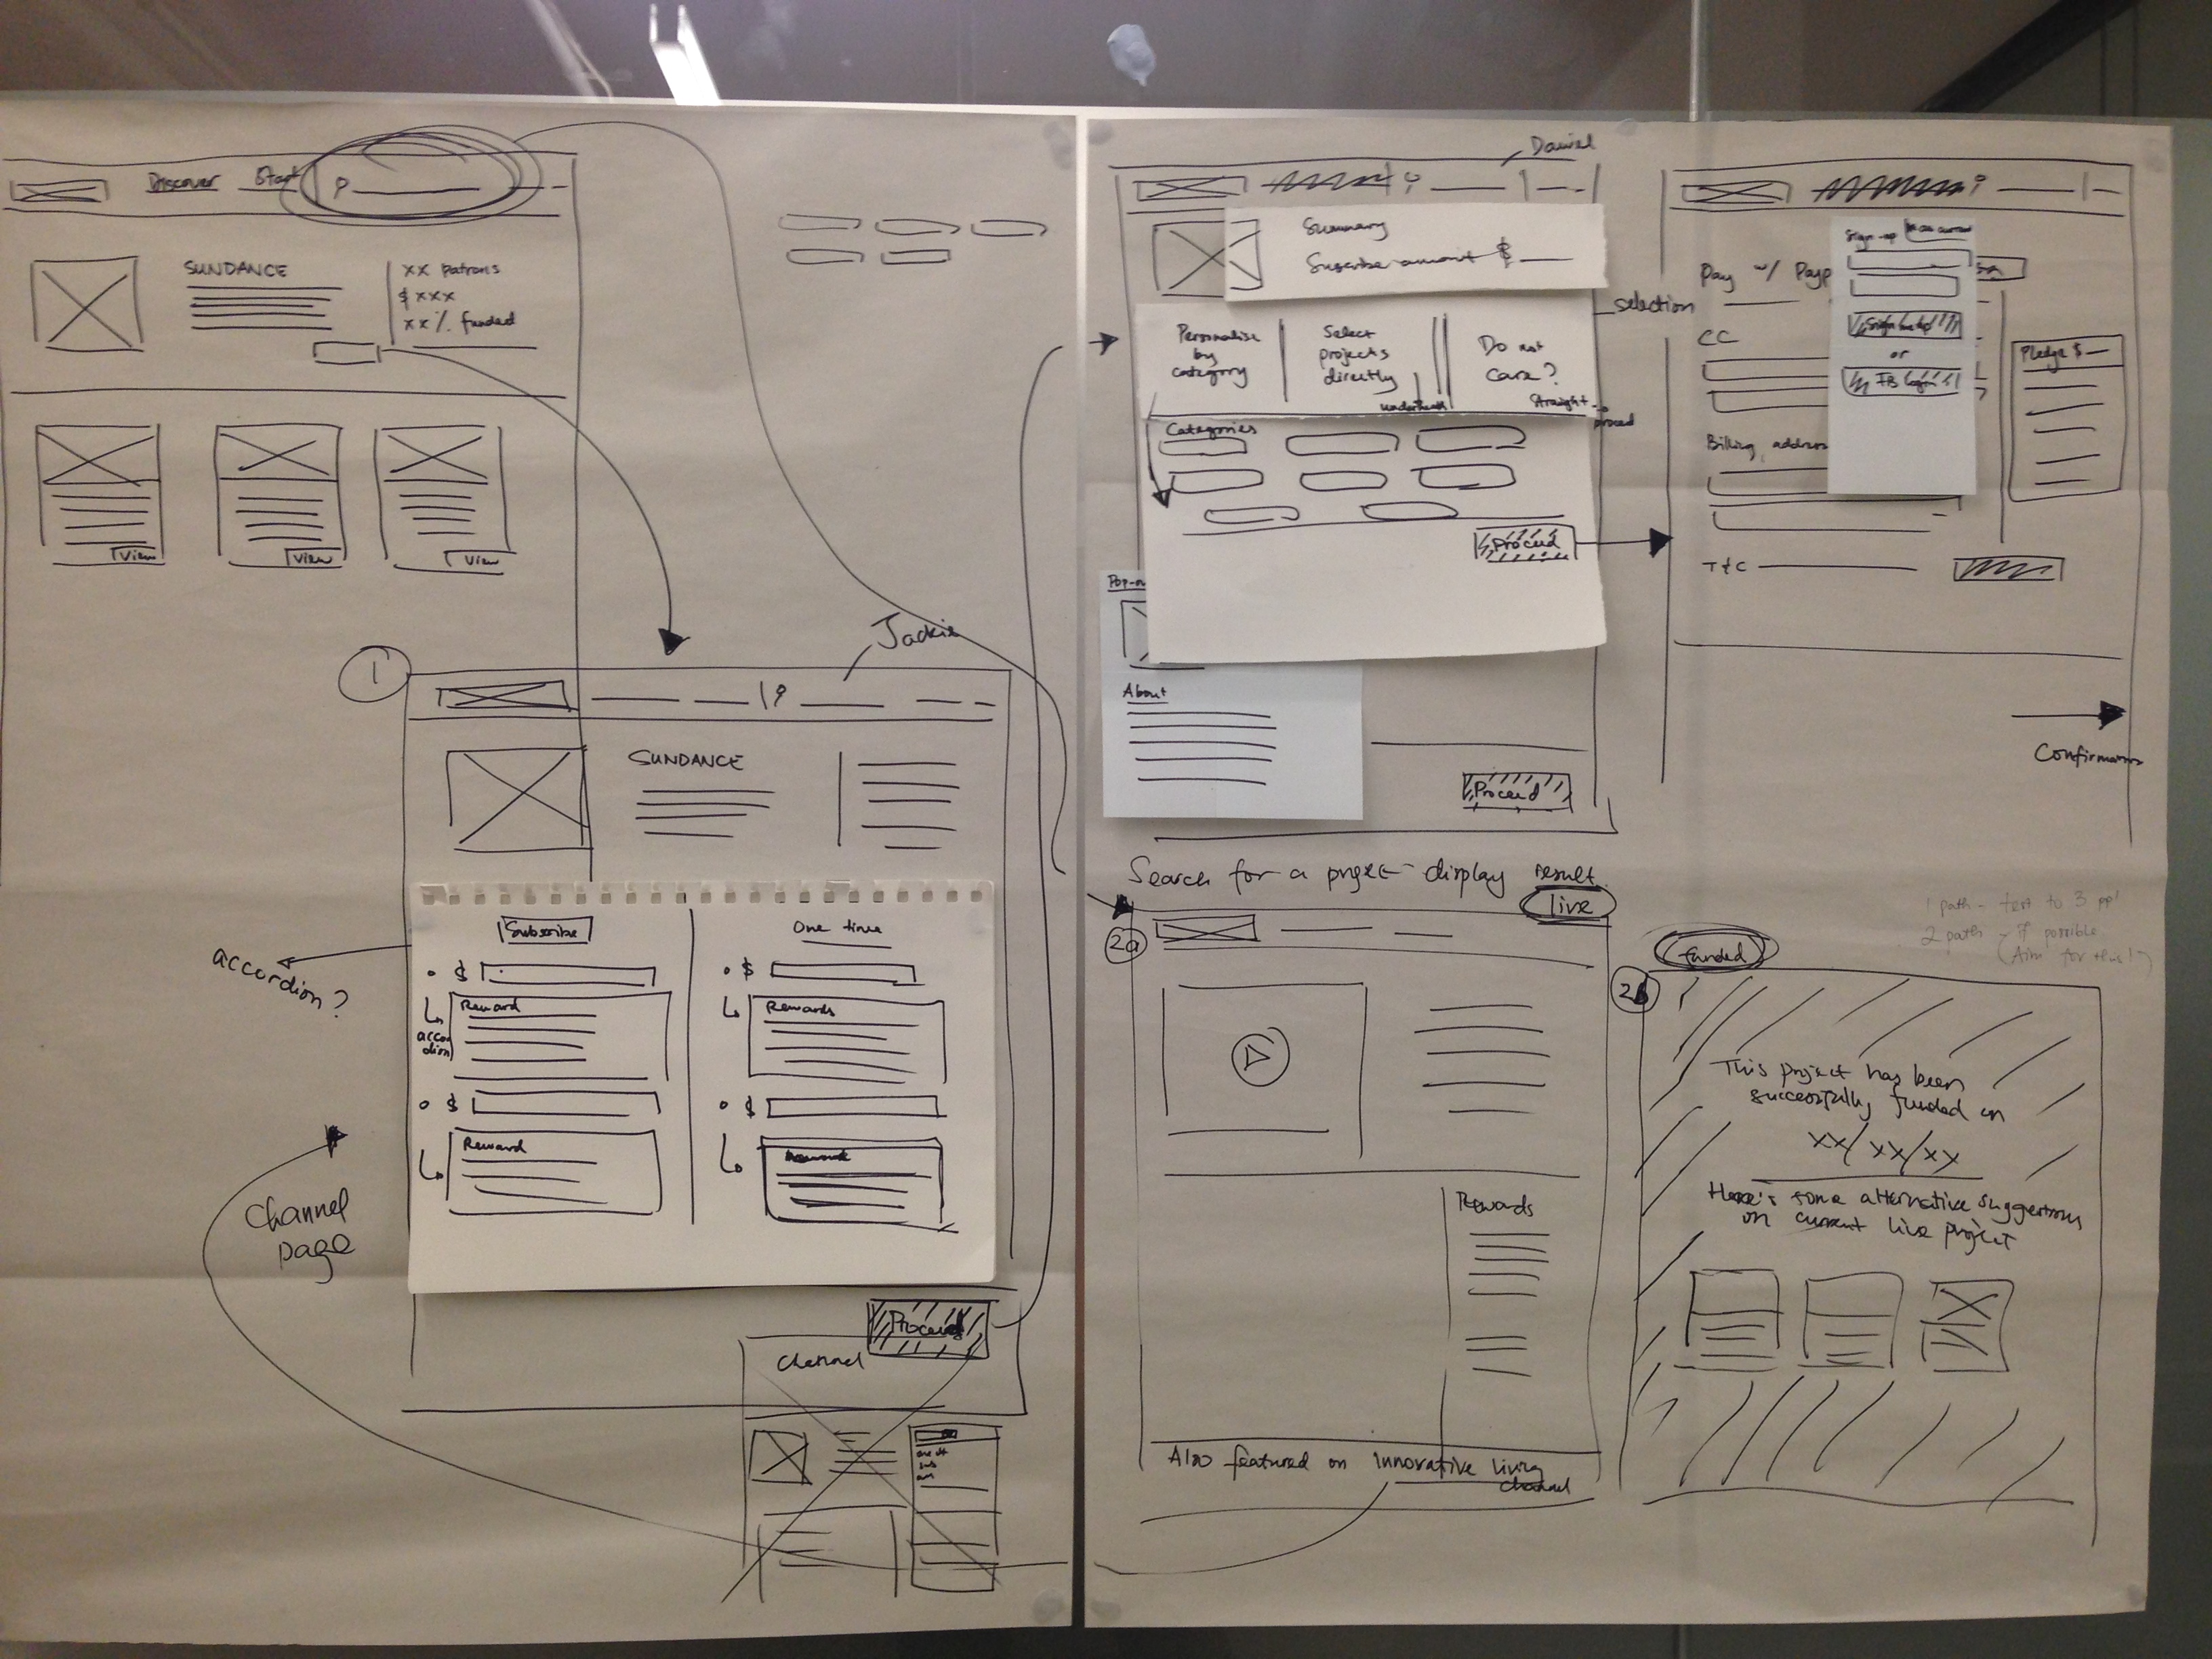 Discover Start
SUNDANCE
xx patrons
$ xxx
xx% funded
View
View
View
1
Jackie
SUNDANCE
accordion?
Subscribe
One time
$
$
Reward
Rewards
accordion
$
$
Reward
Channel
page
Proceed
Channel
Daniel
Summary
Suscribe amount $
selection
Personalise
by
category
Select
projects
directly
underneath
Do not
care?
Straight
to proceed
Categories
Proceed
Pop-ou
About
Proceed
Sign-up
Pay w/ Payp
CC
Sign me up
or
FB login
Billing address
Pledge $
T&C
Confirmation
Search for a project - display result
live
2a
Rewards
Also featured on innovative living
channel
1 path - test to 3 ppl
2 path - if possible
(Aim for this!)
funded
2b
This project has been
successfully funded on
xx/xx/xx
Here's some alternative suggestions
on current live project